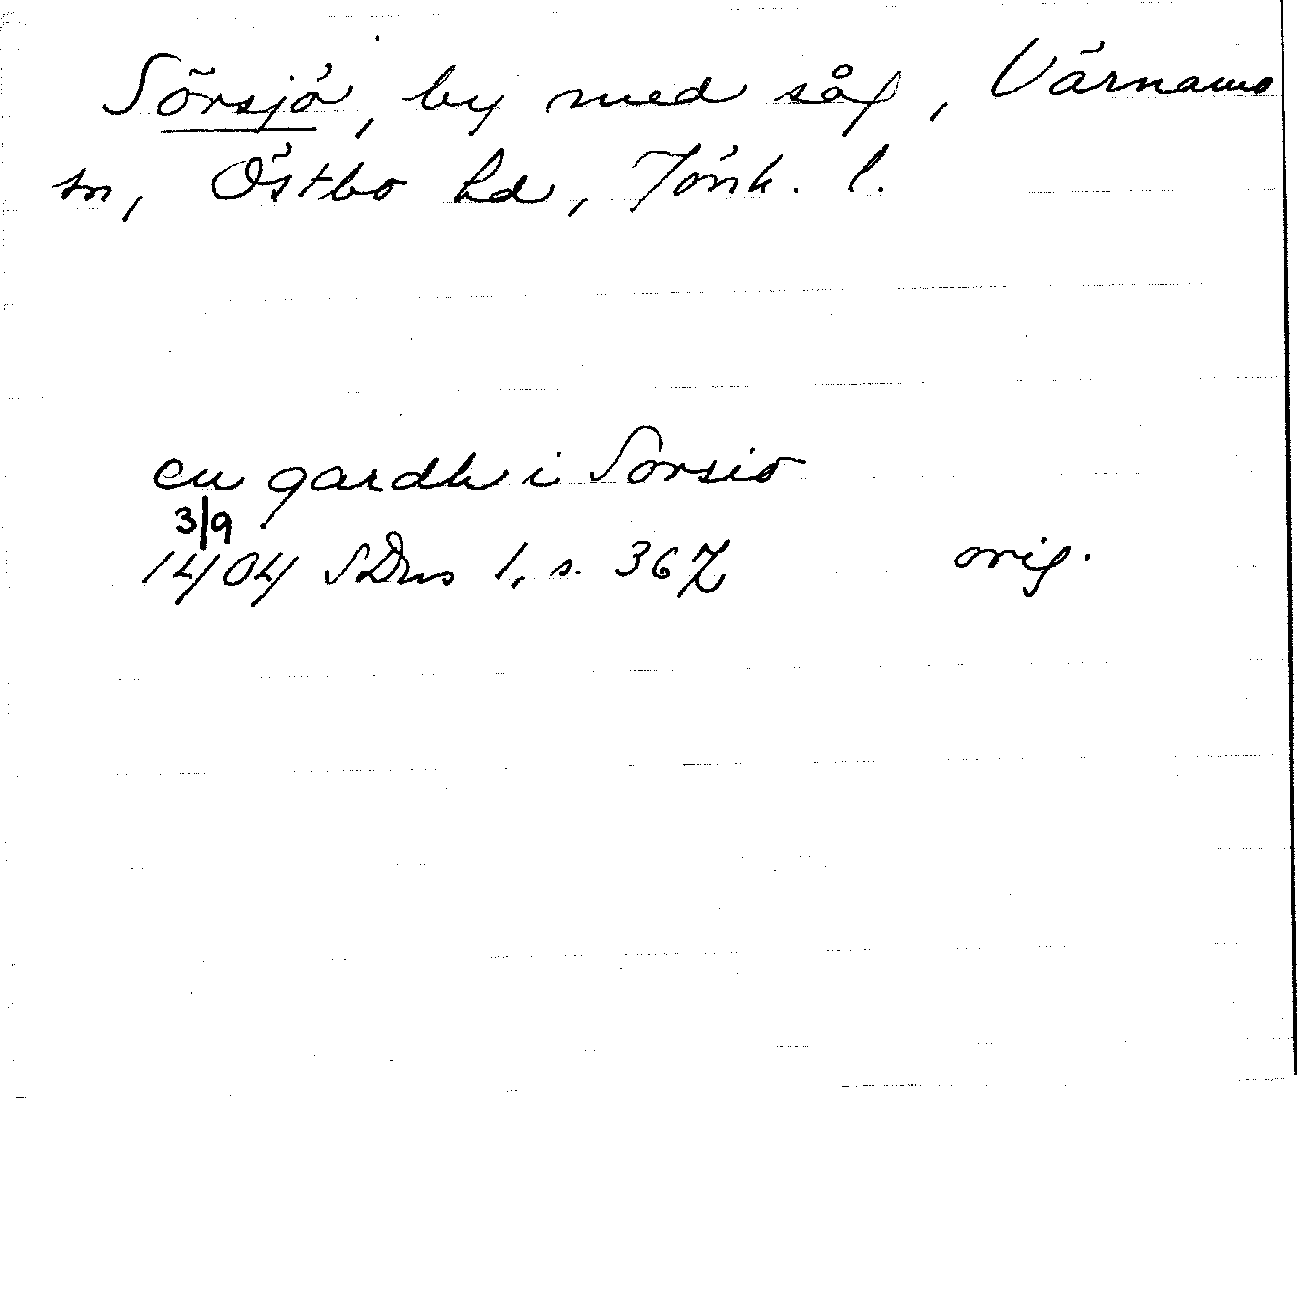 Sörsjö, by med såg, Värnamo
sn, Östbo hd, Jönk. l.
en gardh i Sorsio
3/9
1404 SDns 1, s. 367 orig.